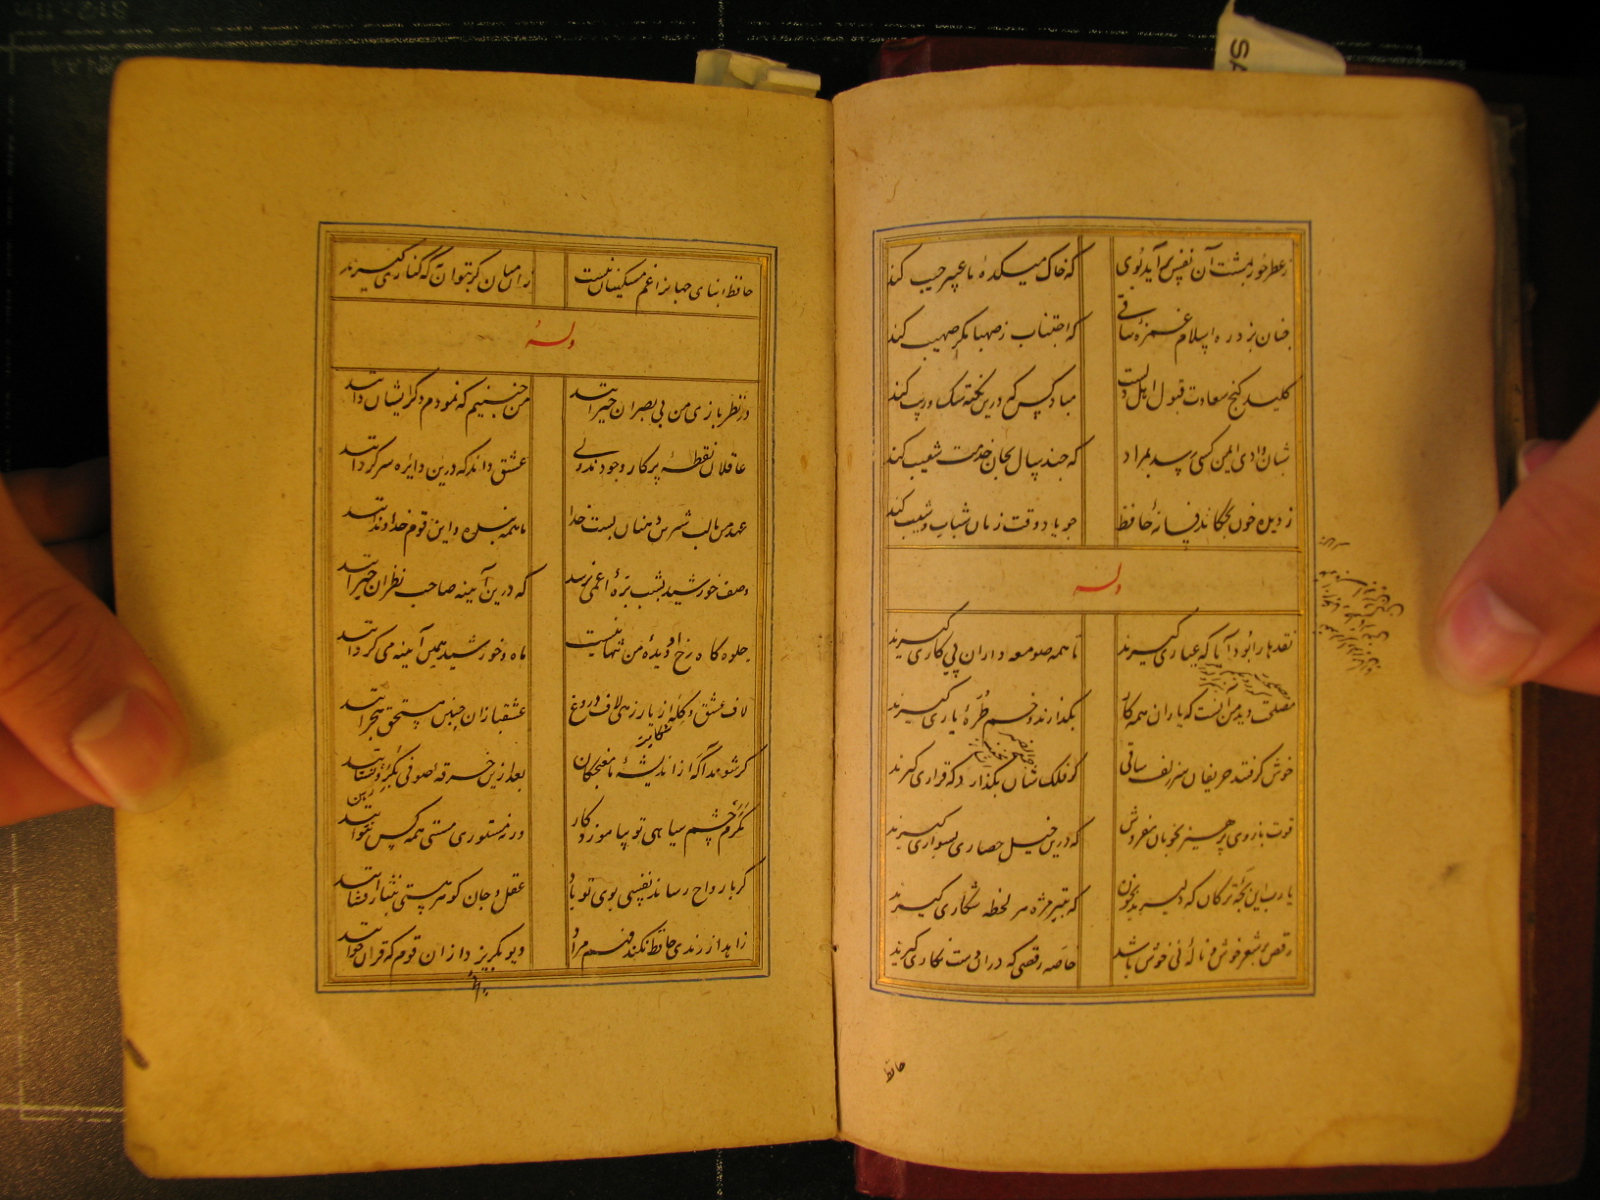 ز عطر حور بهشت آن نفس برآید بوی
که خاک میکدهٔ ما عبیر جیب کند
چنان بزد ره اسلام غمزهٔ ساقی
که اجتناب ز صهبا مگر صهیب کند
کلید گنج سعادت قبول اهل دلست
مباد کس که درین نکته شک و ریب کند
شبان وادی ایمن کسی رسد بمراد
که چند سال بجان خدمت شعیب کند
ز دیده خون بچکاند فسانهٔ حافظ
چو یاد وقت زمان شباب و شیب کند
وله
نقدها را بود آیا که عیاری گیرند
تا همه صومعه داران پی کاری گیرند
مصلحت دید من آنست که یاران همه کار
بگذارند و خم طرهٔ یاری گیرند
خوش گرفتند حریفان سر زلف ساقی
گر فلکشان بگذارد که قراری گیرند
قوت بازوی پرهیز بخوبان مفروش
که درین خیل حصاری بسواری گیرند
یا رب این بچهٔ ترکان که دلیرند بخون
که بتیر مژه هر لحظه شکاری گیرند
رقص بر شعر خوش و نالهٔ نی خوش باشد
خاصه رقصی که در آن دست نگاری گیرند
حافظ
حافظ ابنای جهانرا غم مسکینان نیست
زان میان گر بتوان به که کناری گیرند
وله
در نظر بازی من بی بصران حیرانند
من چنینم که نمودم دگر ایشان دانند
عاقلان نقطهٔ پرکار وجودند ولی
عشق داند که درین دایره سرگردانند
عهد من با لب شیرین دهنان بست خدا
ما همه بنده و این قوم خداوندانند
وصف خورشید بشب پرهٔ اعمی نرسد
که درین آینه صاحب نظران حیرانند
جلوه گاه رخ او دیدهٔ من تنها نیست
ماه و خورشید همین آینه می گردانند
لاف عشق و گله از یار زهی لاف دروغ
عشقبازان چنین مستحق هجرانند
گر شوند آگه از اندیشهٔ ما مغبچگان
بعد ازین خرقهٔ صوفی بگرو نستانند
مگرم چشم سیاه تو بیاموزد کار
ورنه مستوری و مستی همه کس نتوانند
گر بارواح رساند نفسی بوی تو باد
عقل و جان گوهر هستی بنثار افشانند
زاهد ار رندی حافظ نکند فهم مراد
دیو بگریزد ازان قوم که قرآن خوانند